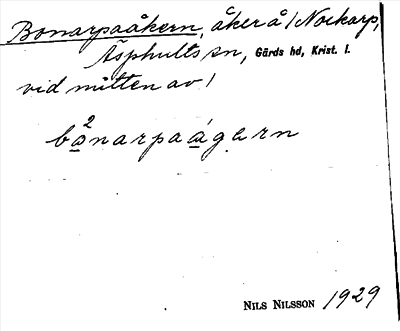 Bonarpaåkern, åker å 1 Norkarp,
Äsphults sn, Gärds hd, Krist. l.
vid mitten av 1
b²onarpaágern
NILS NILSSON 1929